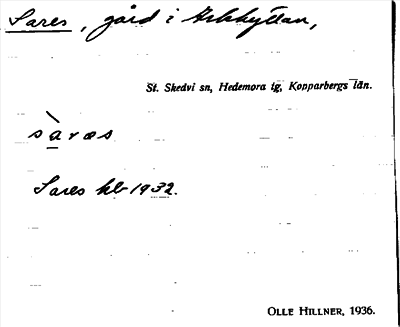 Sares, gård i Arkhyttan,
St. Skedvi sn, Hedemora tg, Kopparbergs län.
sàræs
Sares hb 1932.
OLLE HILLNER, 1936.